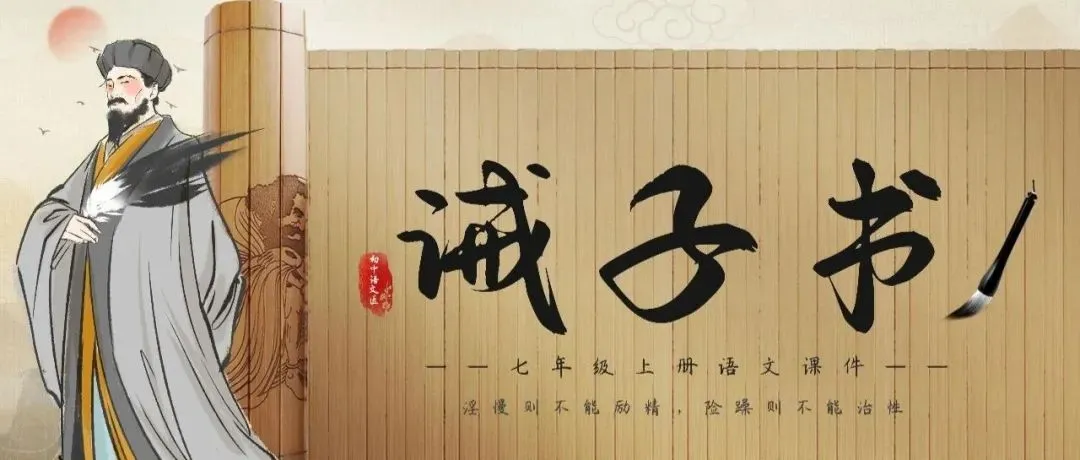 诫子书
初中语文匠
——七年级上册语文课件——
淫慢则不能励精，险躁则不能治性